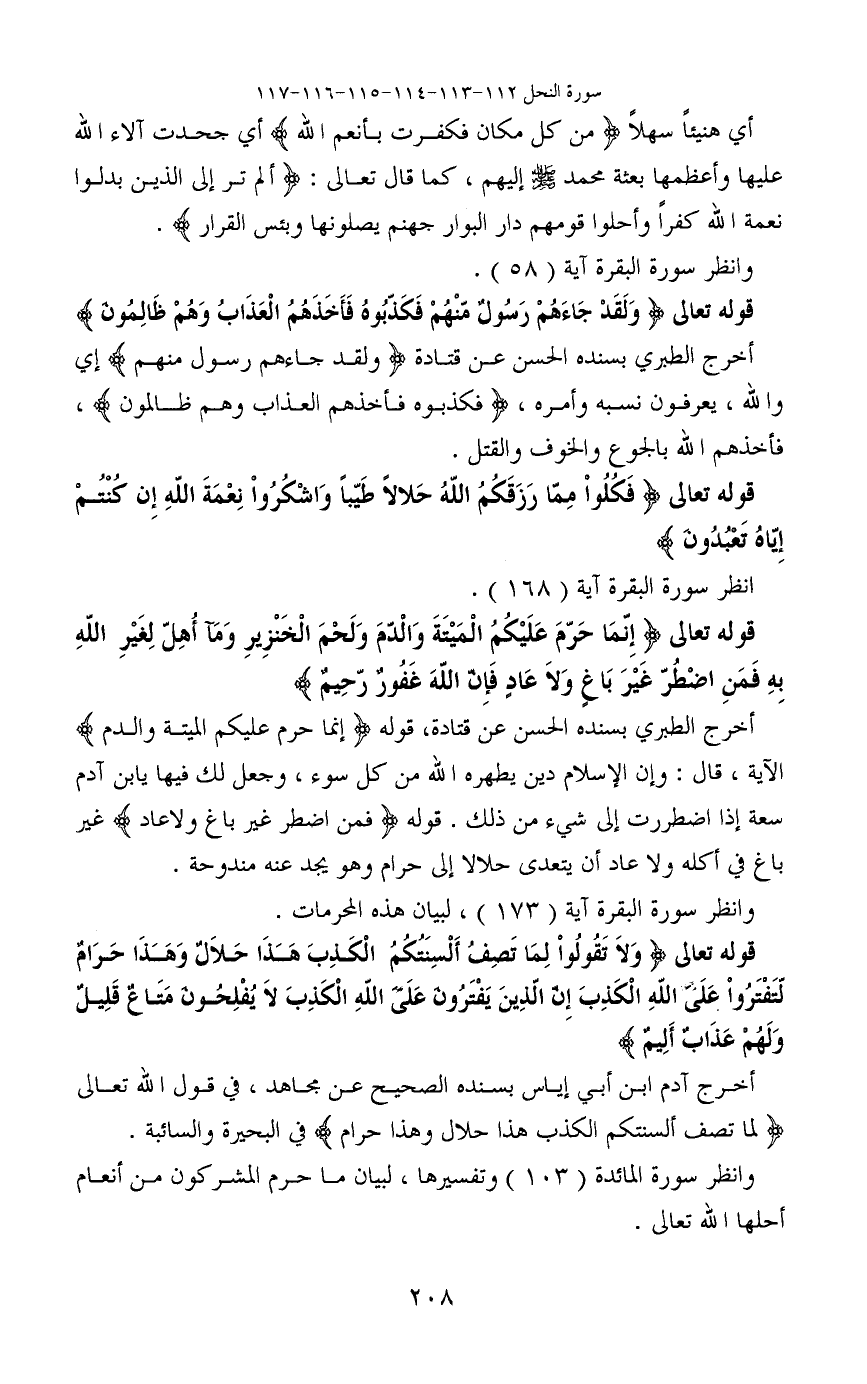 سورة النحل ١١٢-١١٣-١١٤-١١٥-١١٦-١١٧
أي هنيئاً سهلاً ﴿ من كل مكان فكفرت بأنعم الله ﴾ أي جحدت آلاء الله
عليها وأعظمها بعثة محمد ﷺ إليهم ، كما قال تعالى : ﴿ ألم تر إلى الذين بدلوا
نعمة الله كفراً وأحلوا قومهم دار البوار جهنم يصلونها وبئس القرار ﴾ .
وانظر سورة البقرة آية ( ٥٨ ) .
قوله تعالى ﴿ وَلَقَدْ جَاءَهُمْ رَسُولٌ مّنْهُمْ فَكَذّبُوهُ فَأَخَذَهُمُ الْعَذَابُ وَهُمْ ظَالِمُونَ ﴾
أخرج الطبري بسنده الحسن عن قتادة ﴿ ولقد جاءهم رسول منهم ﴾ إي
والله ، يعرفون نسبه وأمره ، ﴿ فكذبوه فأخذهم العذاب وهم ظالمون ﴾ ،
فأخذهم الله بالجوع والخوف والقتل .
قوله تعالى ﴿ فَكُلُواْ مِمّا رَزَقَكُمُ اللّهُ حَلالاً طَيّباً وَاشْكُرُواْ نِعْمَةَ اللّهِ إِن كُنْتُمْ
إِيّاهُ تَعْبُدُونَ ﴾
انظر سورة البقرة آية ( ١٦٨ ) .
قوله تعالى ﴿ إِنّمَا حَرّمَ عَلَيْكُمُ الْمَيْتَةَ وَالْدّمَ وَلَحْمَ الْخَنْزِيرِ وَمَآ أُهِلّ لِغَيْرِ اللّهِ
بِهِ فَمَنِ اضْطُرّ غَيْرَ بَاغٍ وَلاَ عَادٍ فَإِنّ اللّهَ غَفُورٌ رّحِيمٌ ﴾
أخرج الطبري بسنده الحسن عن قتادة، قوله ﴿ إنما حرم عليكم الميتة والدم ﴾
الآية ، قال : وإن الإسلام دين يطهره الله من كل سوء ، وجعل لك فيها يابن آدم
سعة إذا اضطررت إلى شيء من ذلك . قوله ﴿ فمن اضطر غير باغ ولاعاد ﴾ غير
باغ في أكله ولا عاد أن يتعدى حلالا إلى حرام وهو يجد عنه مندوحة .
وانظر سورة البقرة آية ( ١٧٣ ) ، لبيان هذه المحرمات .
قوله تعالى ﴿ وَلاَ تَقُولُواْ لِمَا تَصِفُ أَلْسِنَتُكُمُ الْكَذِبَ هَـَذَا حَلاَلٌ وَهَـَذَا حَرَامٌ
لّتَفْتَرُواْ عَلَىَ اللّهِ الْكَذِبَ إِنّ الّذِينَ يَفْتَرُونَ عَلَىَ اللّهِ الْكَذِبَ لاَ يُفْلِحُونَ مَتَاعٌ قَلِيلٌ
وَلَهُمْ عَذَابٌ أَلِيمٌ ﴾
أخرج آدم ابن أبي إياس بسنده الصحيح عن مجاهد ، في قول الله تعالى
﴿ لما تصف ألسنتكم الكذب هذا حلال وهذا حرام ﴾ في البحيرة والسائبة .
وانظر سورة المائدة ( ١٠٣ ) وتفسيرها ، لبيان ما حرم المشركون من أنعام
أحلها الله تعالى .
٢٠٨